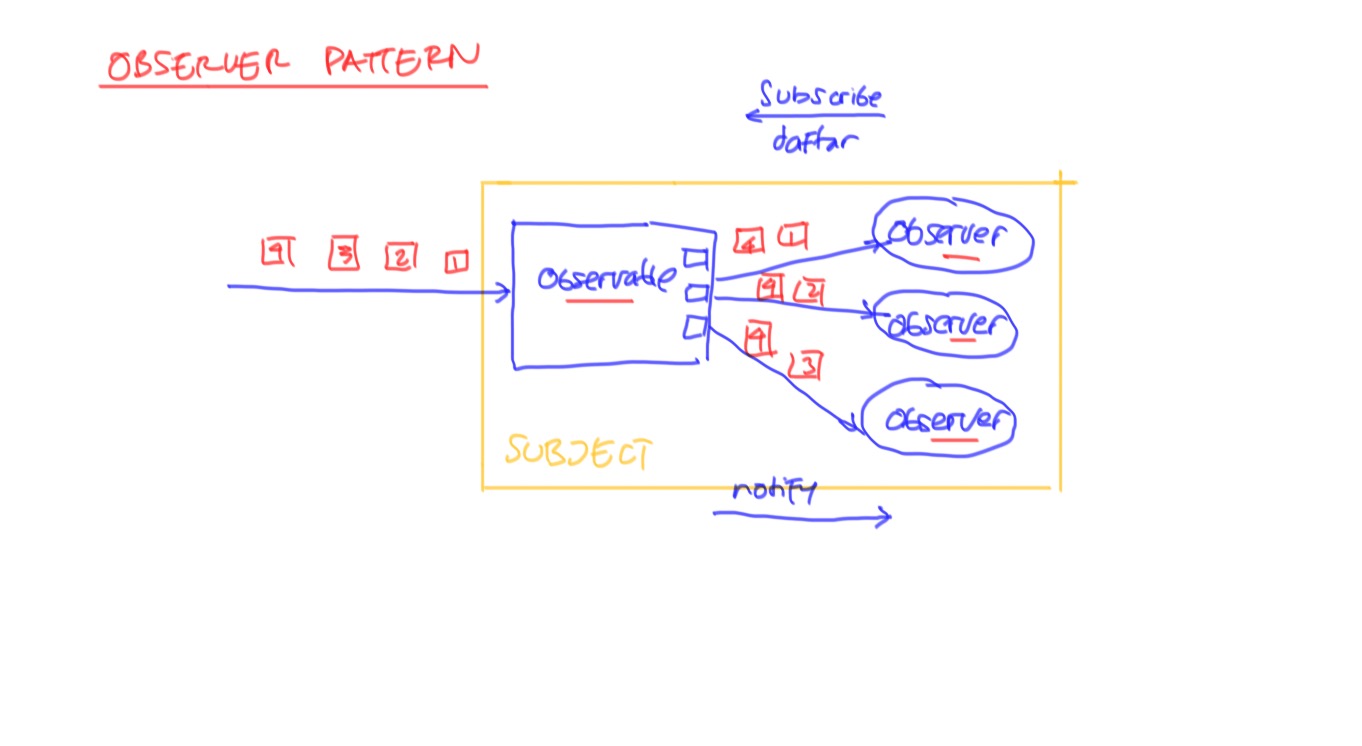 OBSERVER PATTERN
Subscribe
daftar
4 3 2 1
Observable
4 1
Observer
4 2
Observer
4
3
Observer
SUBJECT
notify